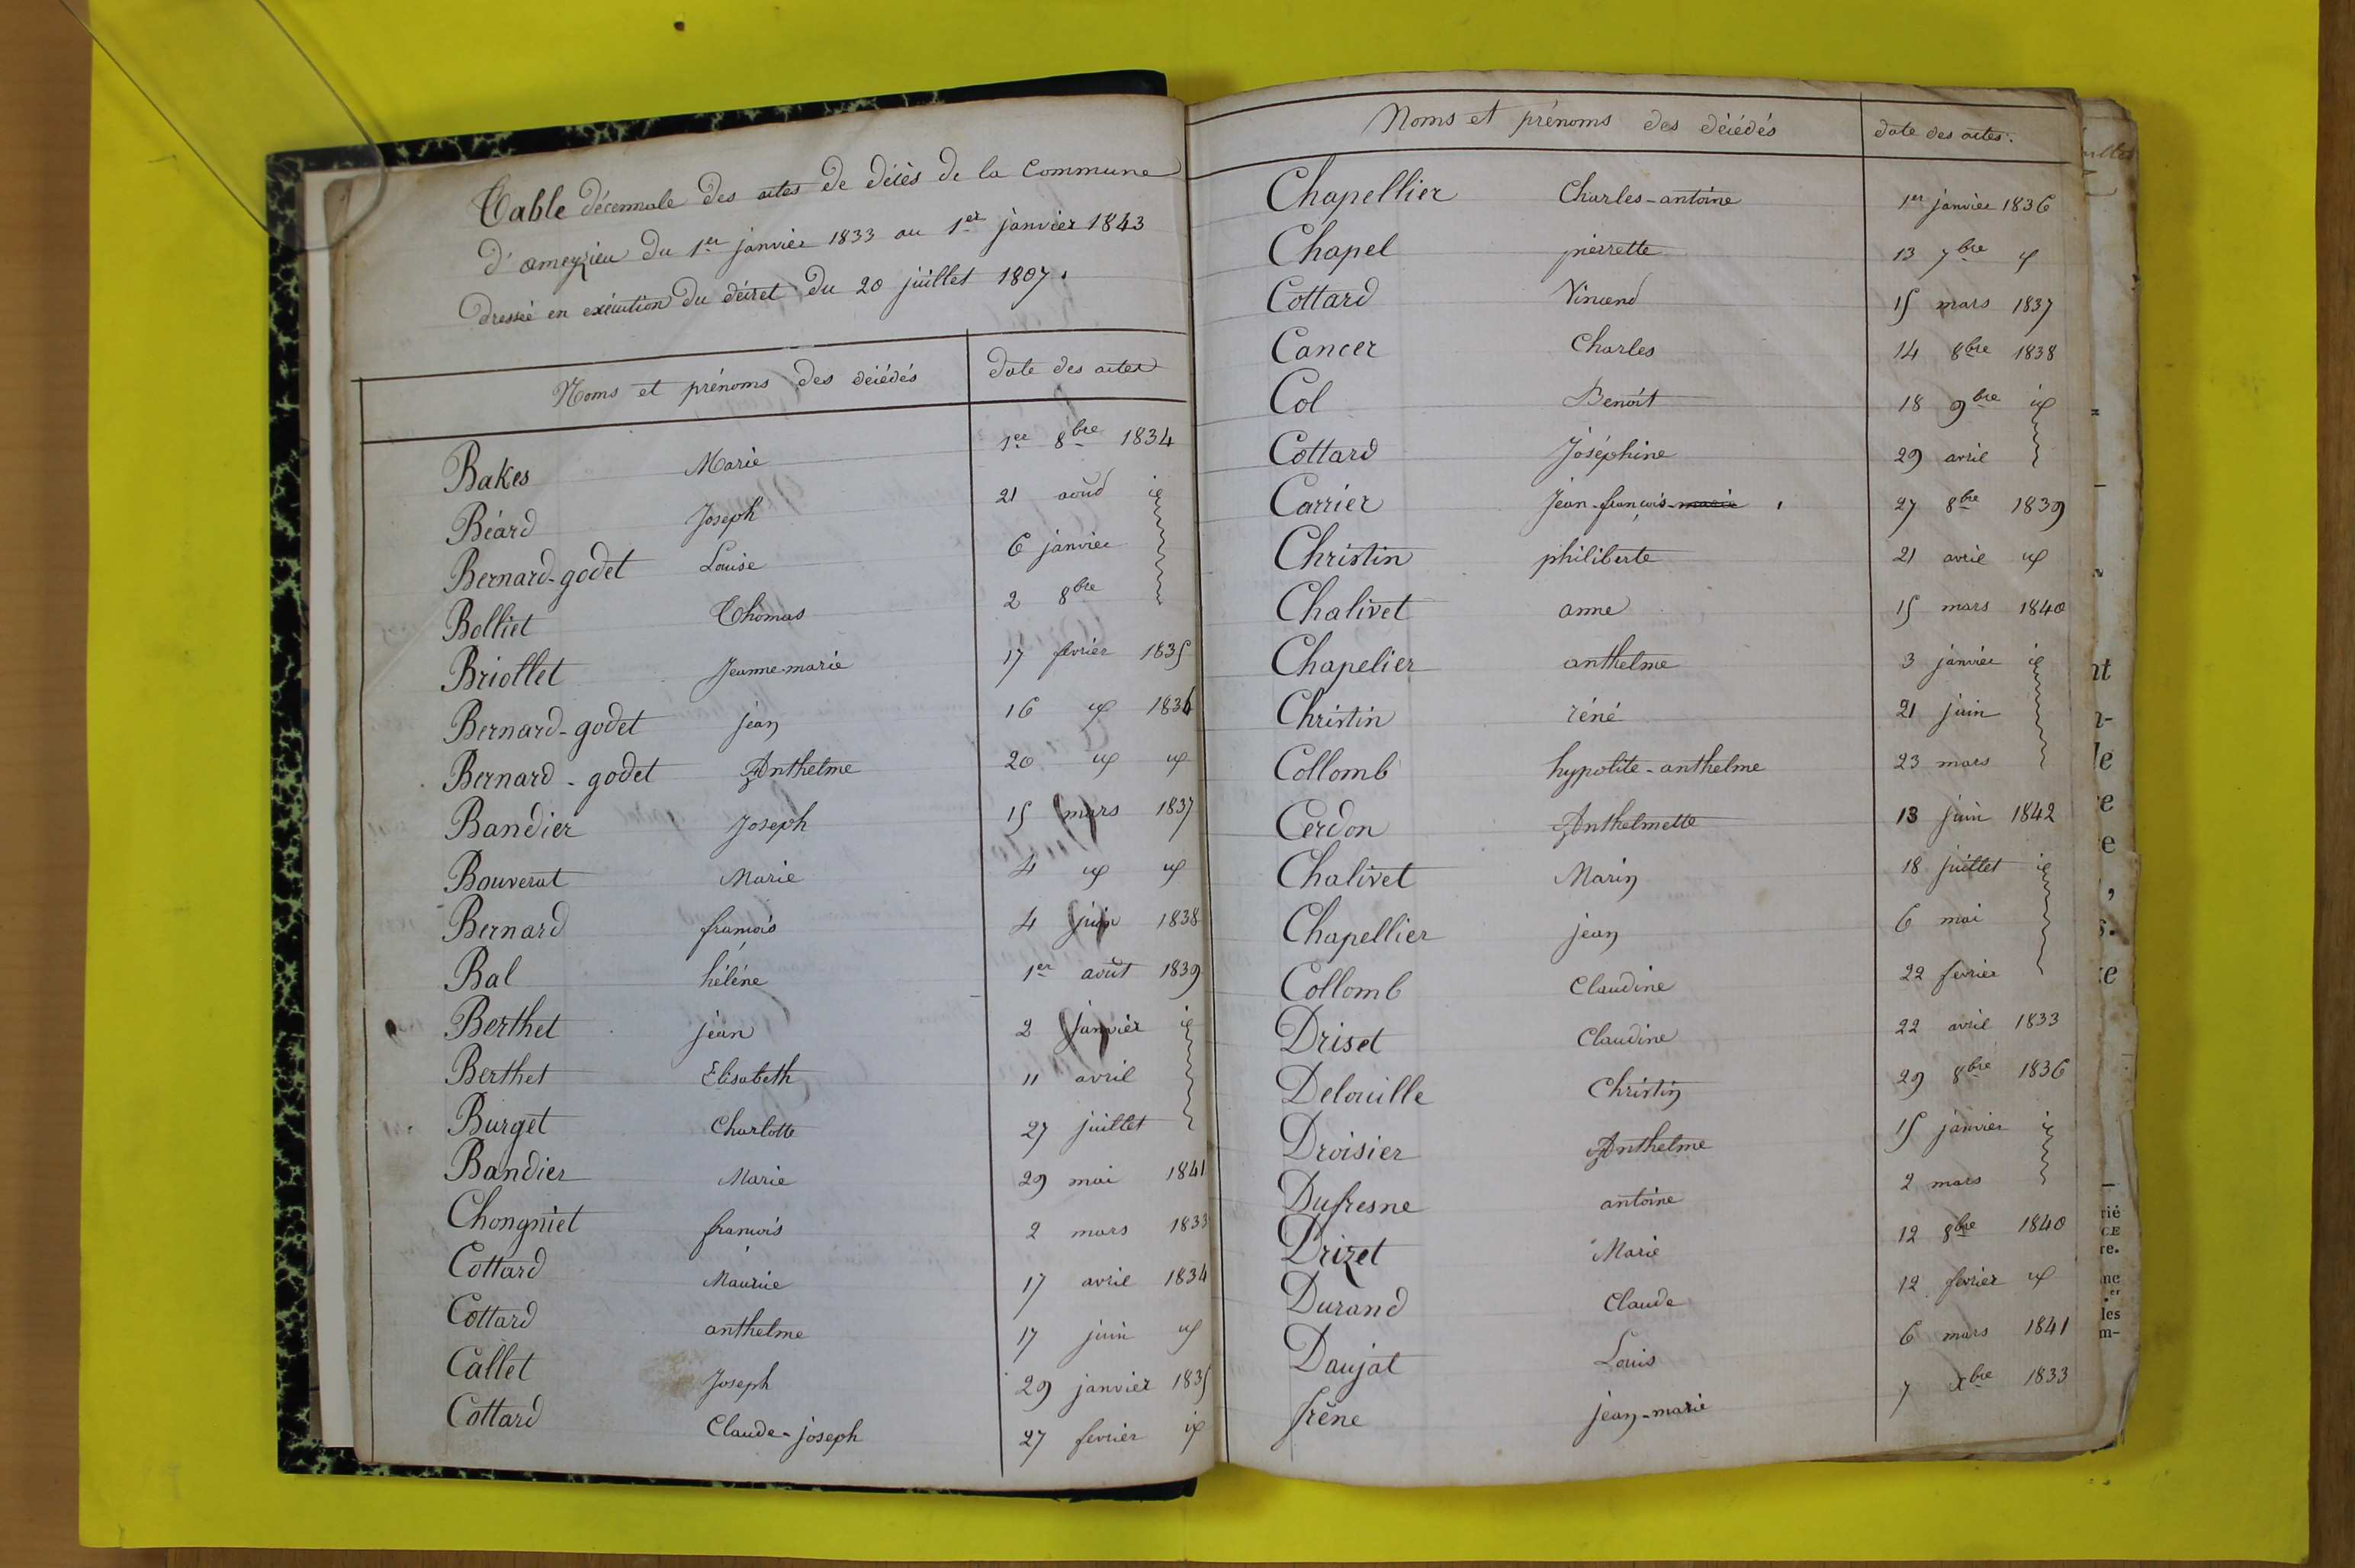 Table décennale des actes de décès de la Commune
d'ameyzieu du 1er janvier 1833 au 1er janvier 1843
dressée en exécution du décret du 20 juillet 1807.
Noms et prénoms des décédés date des actes
Bakes Marie 1er 8bre 1834
Béard Joseph 21 aoûd id
Bernard-godet Louise 6 janvier
Bolliet Thomas 2 8bre
Briollet Jeanne-marie 17 fevrier 1835
Bernard-godet jean 16 id 1836
Bernard-godet Anthelme 20 id id
Bandier Joseph 15 mars 1837
Bouverat Marie 4 id id
Bernard francois 4 juin 1838
Bal héléne 1er août 1839
Berthet jean 2 janvier id
Berthet Elisabeth 11 avril
Burget Charlotte 27 juillet
Bandier Marie 29 mai 1841
Chongniet francois 2 mars 1833
Cottard Maurice 17 avril 1834
Cottard anthelme 17 juin id
Callet Joseph 29 janvier 1835
Cottard Claude-joseph 27 fevrier id
Noms et prénoms des décédés date des actes.
Chapellier Charles-antoine 1er janvier 1836
Chapel pierrette 13 7bre id
Cottard Vincend 15 mars 1837
Cancer Charles 14 8bre 1838
Col Benoît 18 9bre id
Cottard Joséphine 29 avril
Carrier Jean-françois-marie 27 8bre 1839
Christin philiberte 21 avril id
Chalivet anne 15 mars 1840
Chapelier anthelme 3 janvier id
Christin réné 21 juin
Collomb hypolite-anthelme 23 mars
Cerdon Anthelmette 13 juin 1842
Chalivet Marin 18 juillet id
Chapellier jean 6 mai
Collomb Claudine 22 fevrier
Driset Claudine 22 avril 1833
Delouille Christin 29 8bre 1836
Droisier Anthelme 15 janvier id
Dufresne antoine 2 mars
Drizet Marie 12 8bre 1840
Durand Claude 12 fevrier id
Daujat Louis 6 mars 1841
frêne jean-marie 7 Xbre 1833